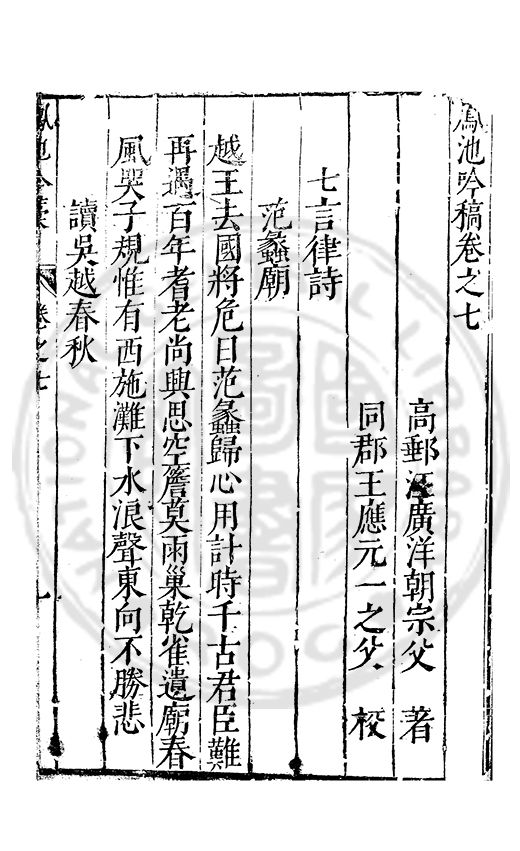 鳳池吟稿卷之七
高郵汪廣洋朝宗父 著
同郡王應元一之父 校
七言律詩
范蠡廟
越王去國將危日范蠡歸心用計時千古君臣難
再遇百年耆老尚興思空簷莫雨巢乾雀遺廟春
風哭子規惟有西施灘下水浪聲東向不勝悲
讀吳越春秋
鳳池吟藁 卷之七 一
NATIONAL CENTRAL LIBRARY